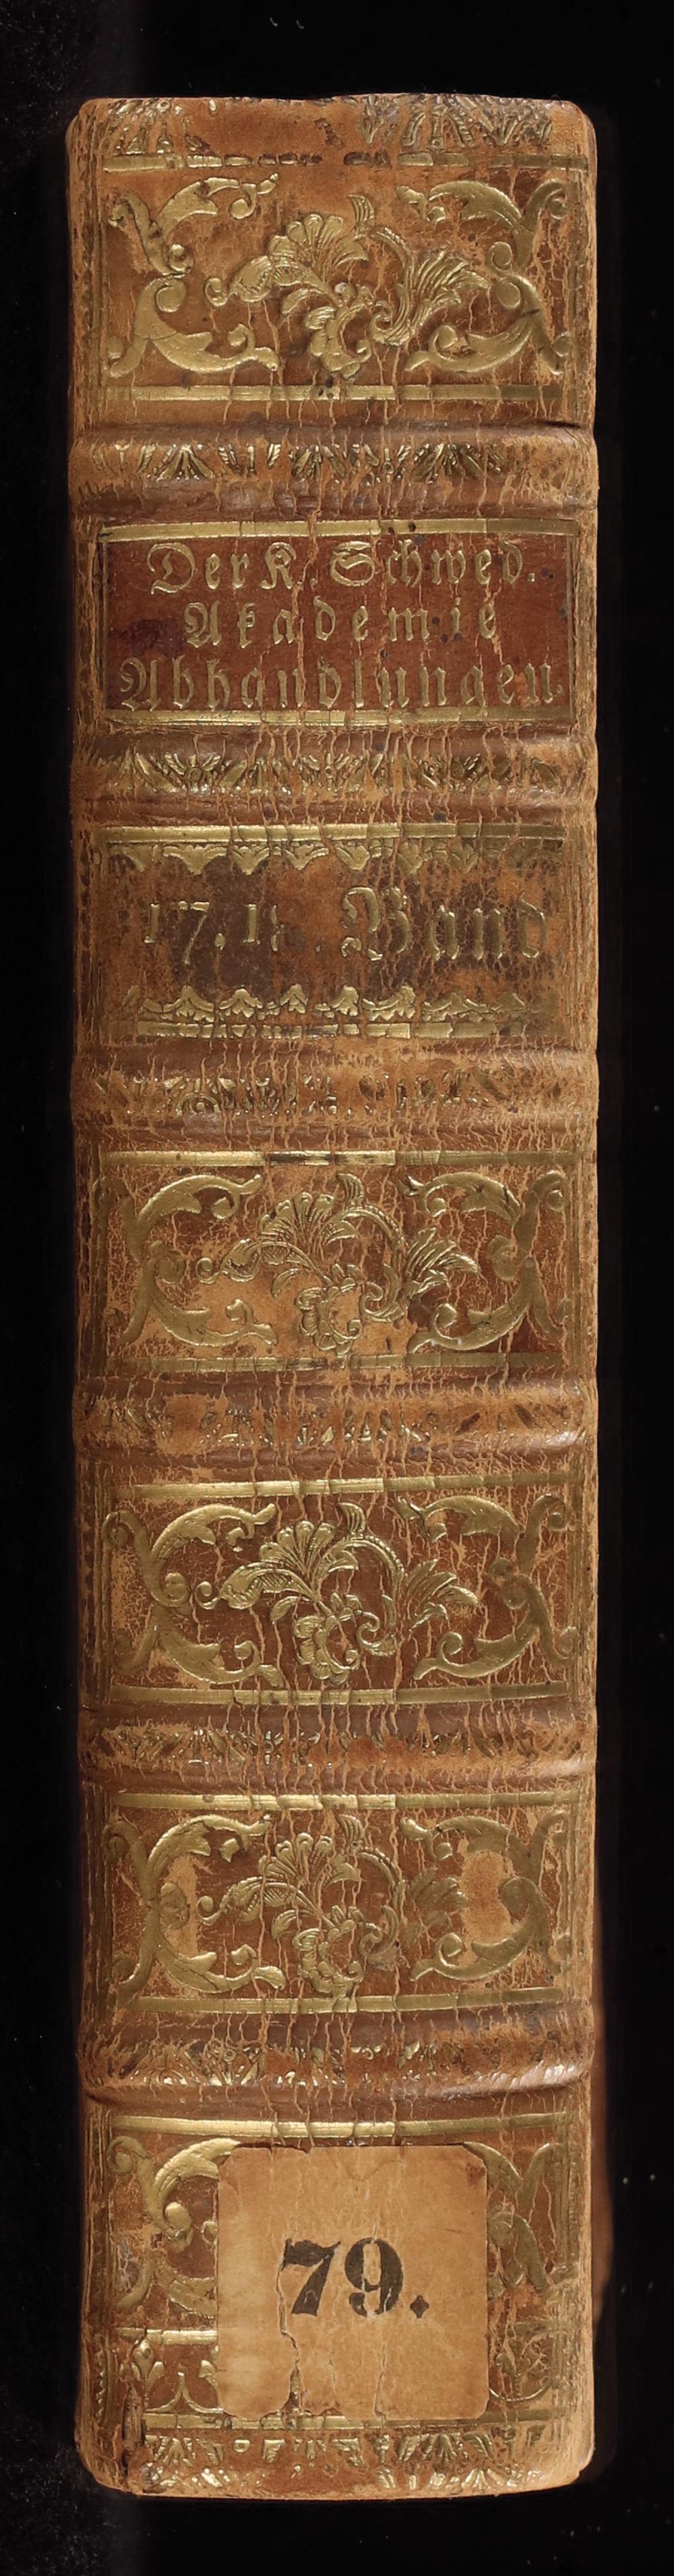 Der K. Schwed.
Akademie
Abhandlungen.
17. 18. Band
79.